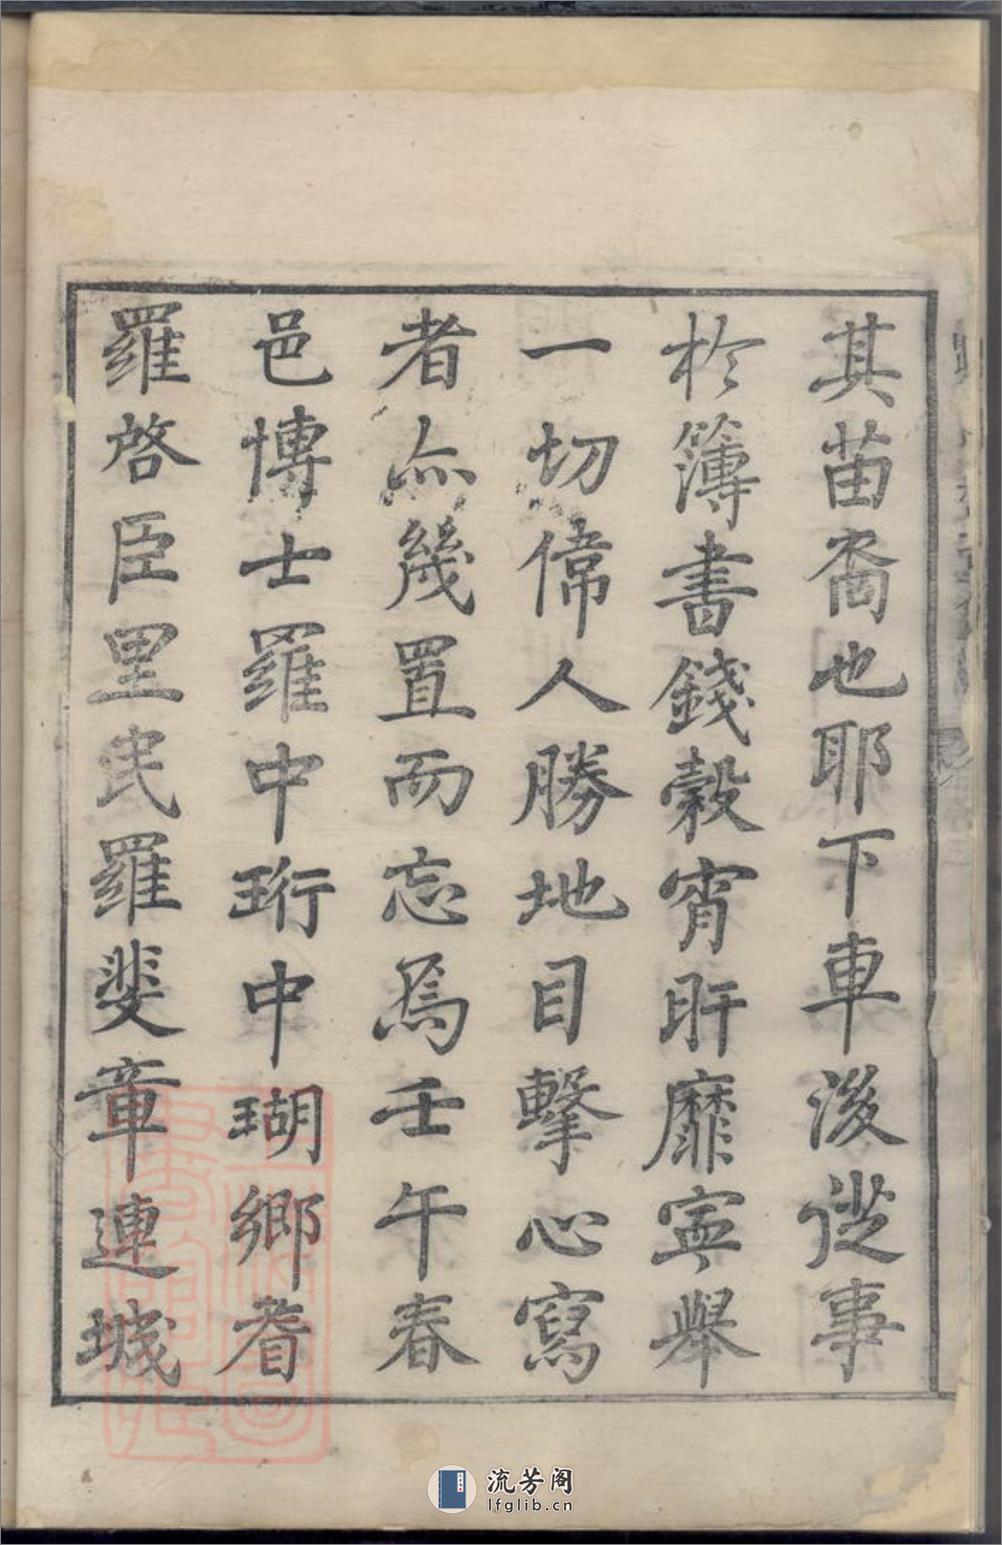 其苗裔也耶下車後從事
於簿書錢穀宵旰靡寧舉
一切偉人勝地目擊心寫
者亦幾置而忘焉壬午春
邑博士羅中珩中瑚鄉耆
羅啓臣里民羅斐章連城
流芳阁
lfglib.cn